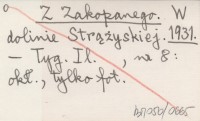 Z Zakopanego. W
dolinie Strążyskiej. 1931.
– Tyg. Il. , nr 8:
okł., tylko fot.